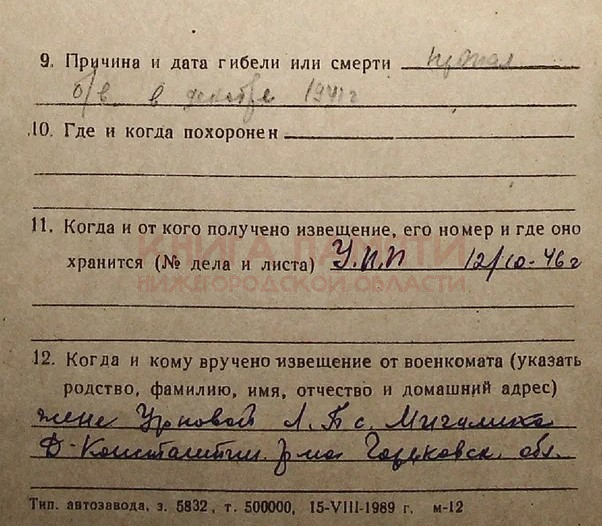 9. Причина и дата гибели или смерти пропал
б/в в декабре 1941 г
10. Где и когда похоронен
11. Когда и от кого получено извещение, его номер и где оно
КНИГА ПАМЯТИ
хранится (№ дела и листа) У.П.П 12/10-46 г
НИЖЕГОРОДСКОЙ ОБЛАСТИ
12. Когда и кому вручено извещение от военкомата (указать
родство, фамилию, имя, отчество и домашний адрес)
жене Урновой Л. П с. Мигалиха
Д-Константин. р-на Горьковск. обл.
Тип. автозавода, з. 5832, т. 500000, 15-VIII-1989 г. м-12